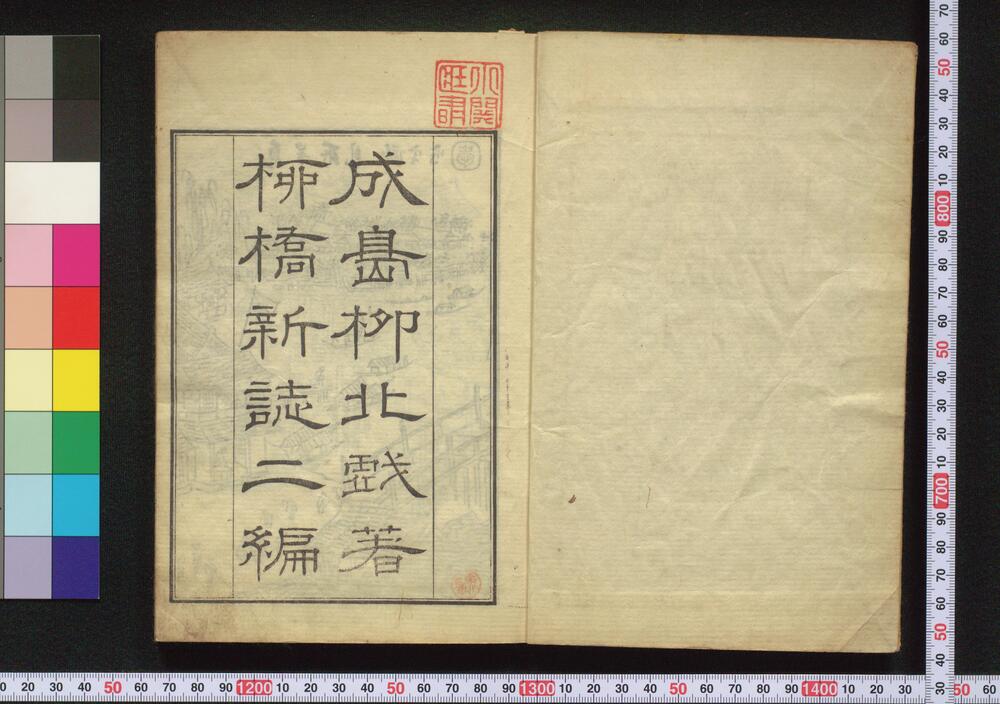 成島柳北戲著
柳橋新誌二編
0 20 30 40 50 60 70 80 90 1200 10 20 30 40 50 60 70 80 90 1300 10 20 30 40 50 60 70 80 90 1400 10 20 30 50 60
70 60 50 40 30 20 10 800 90 80 70 60 50 40 30 20 10 700 90 80 70 60 50 40 30